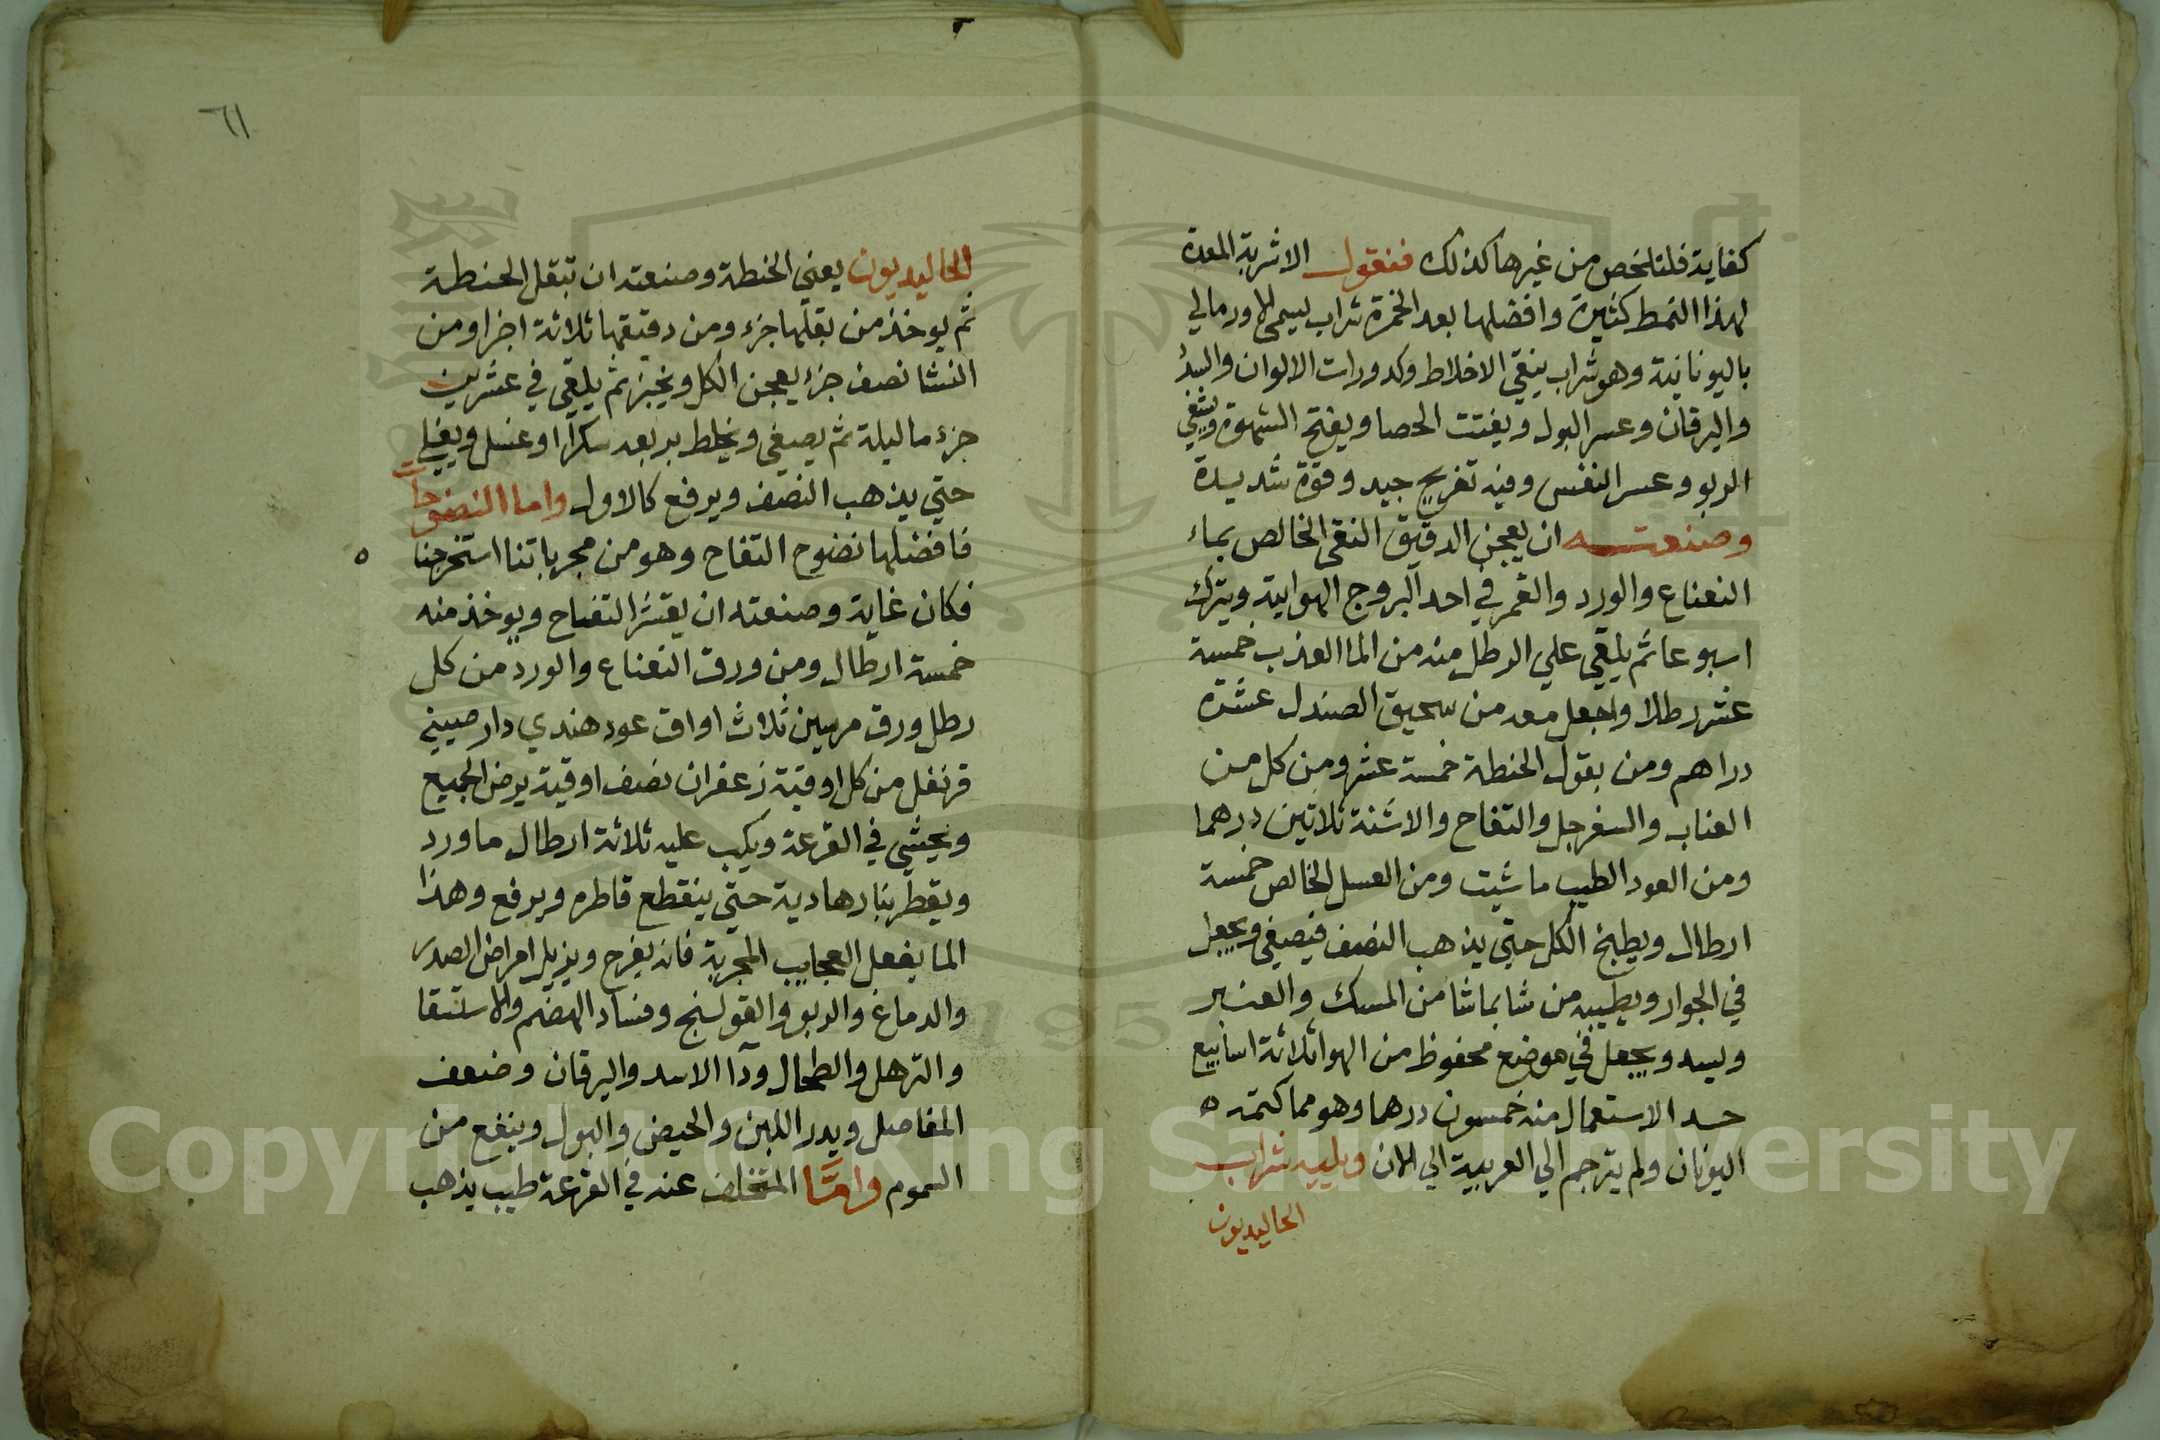 كفاية فلنلخص من غيرها كذلك فنقول الاشربة المعدة
لهذا النمط كثيرة وافضلها بعد الخمرة شراب يسمي الاورمالي
باليونانية وهو شراب ينقي الاخلاط وكدورات الالوان والسدد
واليرقان وعسر البول ويفتت الحصا ويفتح الشهوة ويشفي
الربو وعسر النفس وفيه تفريح جيد وقوة شديدة
وصنعته ان يعجن الدقيق النقي الخالص بماء
النعناع والورد والقمر في احد البروج الهوايية ويترك
اسبوعا ثم يلقي علي الرطل منه من الما العذب خمسة
عشر رطلا واجعل معه من سحيق الصندل عشرة
دراهم ومن بقول الحنطة خمسة عشر ومن كل من
العناب والسفرجل والتفاح والاشنة ثلاثين درهما
ومن العود الطيب ما شيت ومن العسل الخالص خمسة
ارطال ويطبخ الكل حتي يذهب النصف فيصفي ويجعل
في الجرار ويطيبه من شا بما شا من المسك والعنبر
ويسد ويجعل في موضع محفوظ من الهوا ثلاثة اسابيع
حد الاستعمال منه خمسون درهما وهو مما كتمته
اليونان ولم يترجم الي العربية الي الان ويليه شراب
الحاليديون
٦١
الحاليديون يعني الحنطة وصنعته ان تبقل الحنطة
ثم يوخذ من بقلها جزء ومن دقيقها ثلاثة اجزا ومن
النشا نصف جزء يعجن الكل ويخبز ثم يلقي في عشرين
جزء ما ليلة ثم يصفي ويخلط بربعه سكرا او عسل ويغلي
حتي يذهب النصف ويرفع كالاول واما النضوحات
فافضلها نضوح التفاح وهو من مجرباتنا استخرجنا
فكان غاية وصنعته ان يقشر التفاح ويوخذ منه
خمسة ارطال ومن ورق النعناع والورد من كل
رطل ورق مرسين ثلاث اواق عود هندي دار صيني
قرنفل من كل اوقية زعفران نصف اوقية يرض الجميع
ويحشي في القرعة ويكب عليه ثلاثة ارطال ما ورد
ويقطر بنار هادية حتي ينقطع قاطره ويرفع وهذا
الما يفعل العجايب المجربة فانه يفرح ويزيل امراض الصدر
والدماغ والربو والقولنج وفساد الهضم والاستسقا
والترهل والطحال ودا الاسد واليرقان وضعف
المفاصل ويدر اللبن والحيض والبول وينفع من
السموم واما المتخلف عنه في القرعة طيب يذهب
Copyright © King Saud University
195